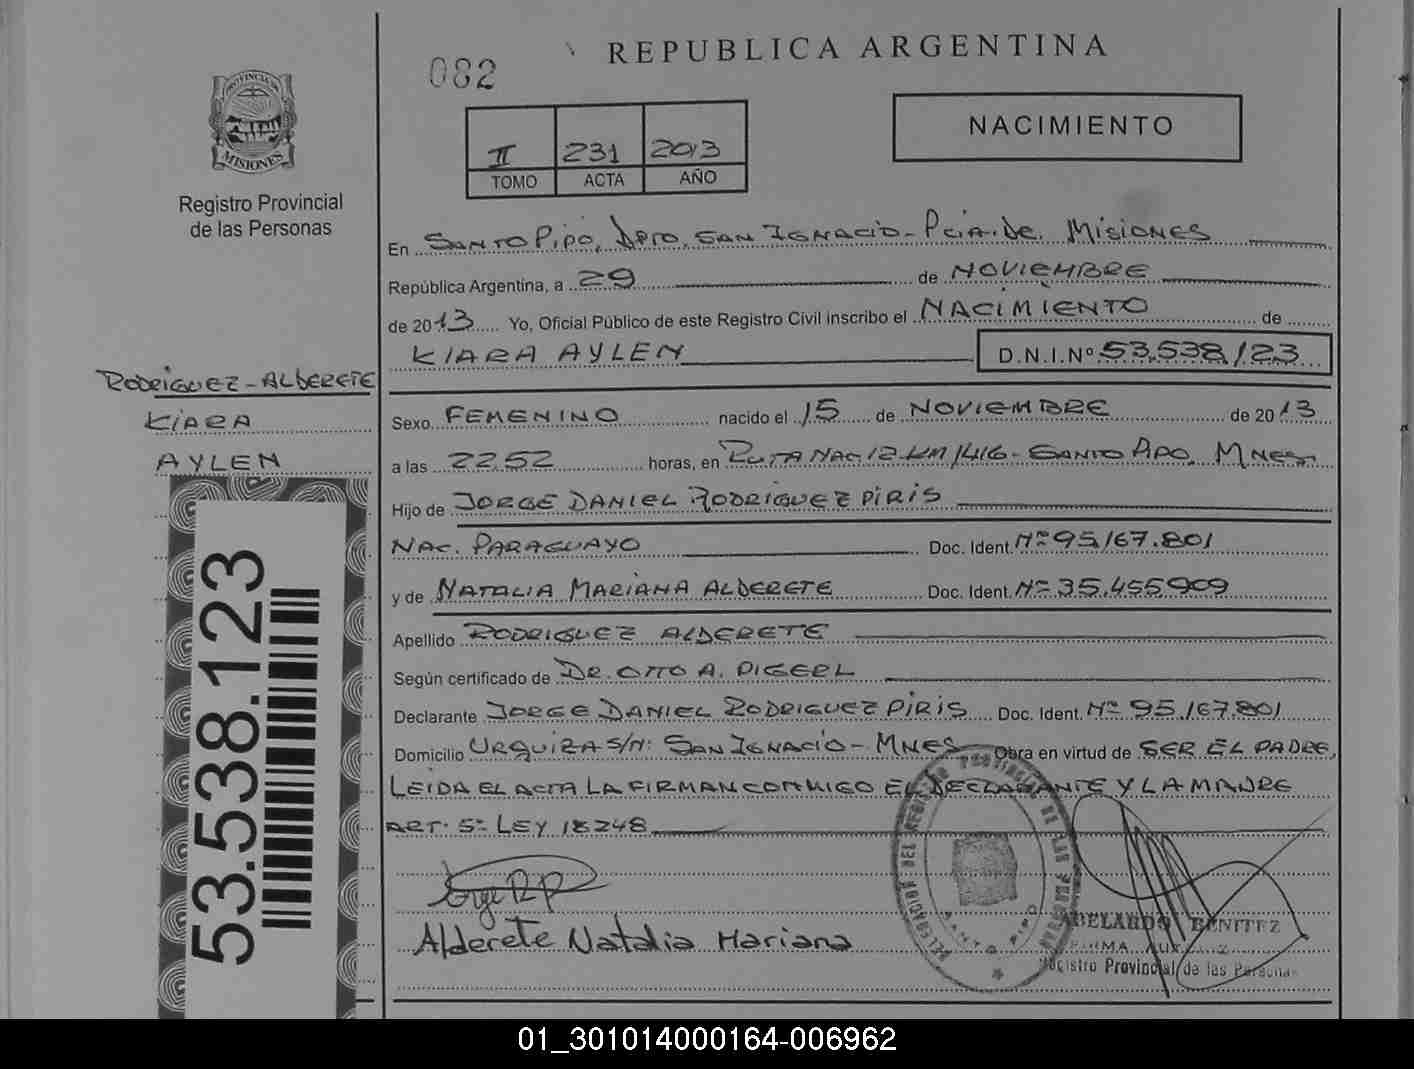 082
REPUBLICA ARGENTINA
NACIMIENTO
II 231 2013
TOMO ACTA AÑO
PROVINCIA DE
MISIONES
Registro Provincial
de las Personas
En SANTO PIPÓ, DPTO. SAN IGNACIO - PCIA. DE. MISIONES
República Argentina, a 29 de NOVIEMBRE
de 2013 Yo, Oficial Público de este Registro Civil inscribo el NACIMIENTO de
KIARA AYLEN D.N.I.Nº 53.538.123
RODRIGUEZ - ALDERETE
KIARA
AYLEN
Sexo FEMENINO nacido el 15 de NOVIEMBRE de 2013
a las 22.52 horas, en RUTA NAC 12 KM 1416 - SANTO PIPO, MNES.
Hijo de JORGE DANIEL RODRIGUEZ PIRIS
NAC. PARAGUAYO Doc. Ident. Nº 95.167.801
y de NATALIA MARIANA ALDERETE Doc. Ident. Nº 35.455.909
Apellido RODRIGUEZ ALDERETE
Según certificado de DR. OTTO A. PIGERL
Declarante JORGE DANIEL RODRIGUEZ PIRIS Doc. Ident. Nº 95.167.801
Domicilio URQUIZA S/N: SAN IGNACIO - MNES Obra en virtud de SER EL PADRE,
LEIDA EL ACTA LA FIRMAN CONMIGO EL DECLARANTE Y LA MADRE
ART. 5º LEY 18248
Jorge R.P
Alderete Natalia Mariana
DELEGACION DEL REGISTRO PROVINCIAL DE LAS PERSONAS
SANTO PIPO
ABELARDO BENITEZ
FIRMA
Registro Provincial de las Personas
53.538.123
01_301014000164-006962